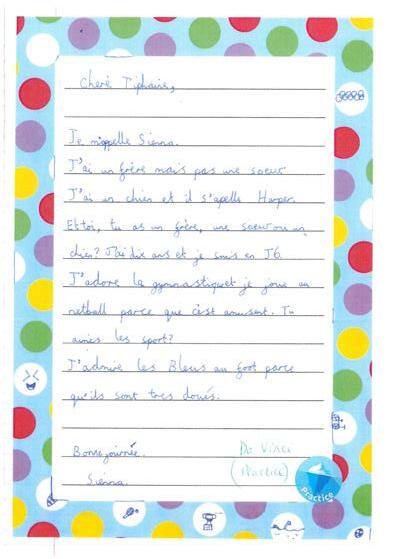 Cherè Tiphaine,
Je m'appelle Sienna.
J'ai un frère mais pas une soeur
J'ai un chien et il s'apelle Harper.
Et toi, tu as un frère, une soeur ou un
chien? J'ai dix ans et je suis en J6.
J'adore la gymnastique et je joue au
netball parce que c'est amusant. Tu
aimes les sport?
J'admire les Bleus au foot parce
qu'ils sont tres doués.
Bonne journée.
Sienna.
Da Vinci
(Practice)
Practice